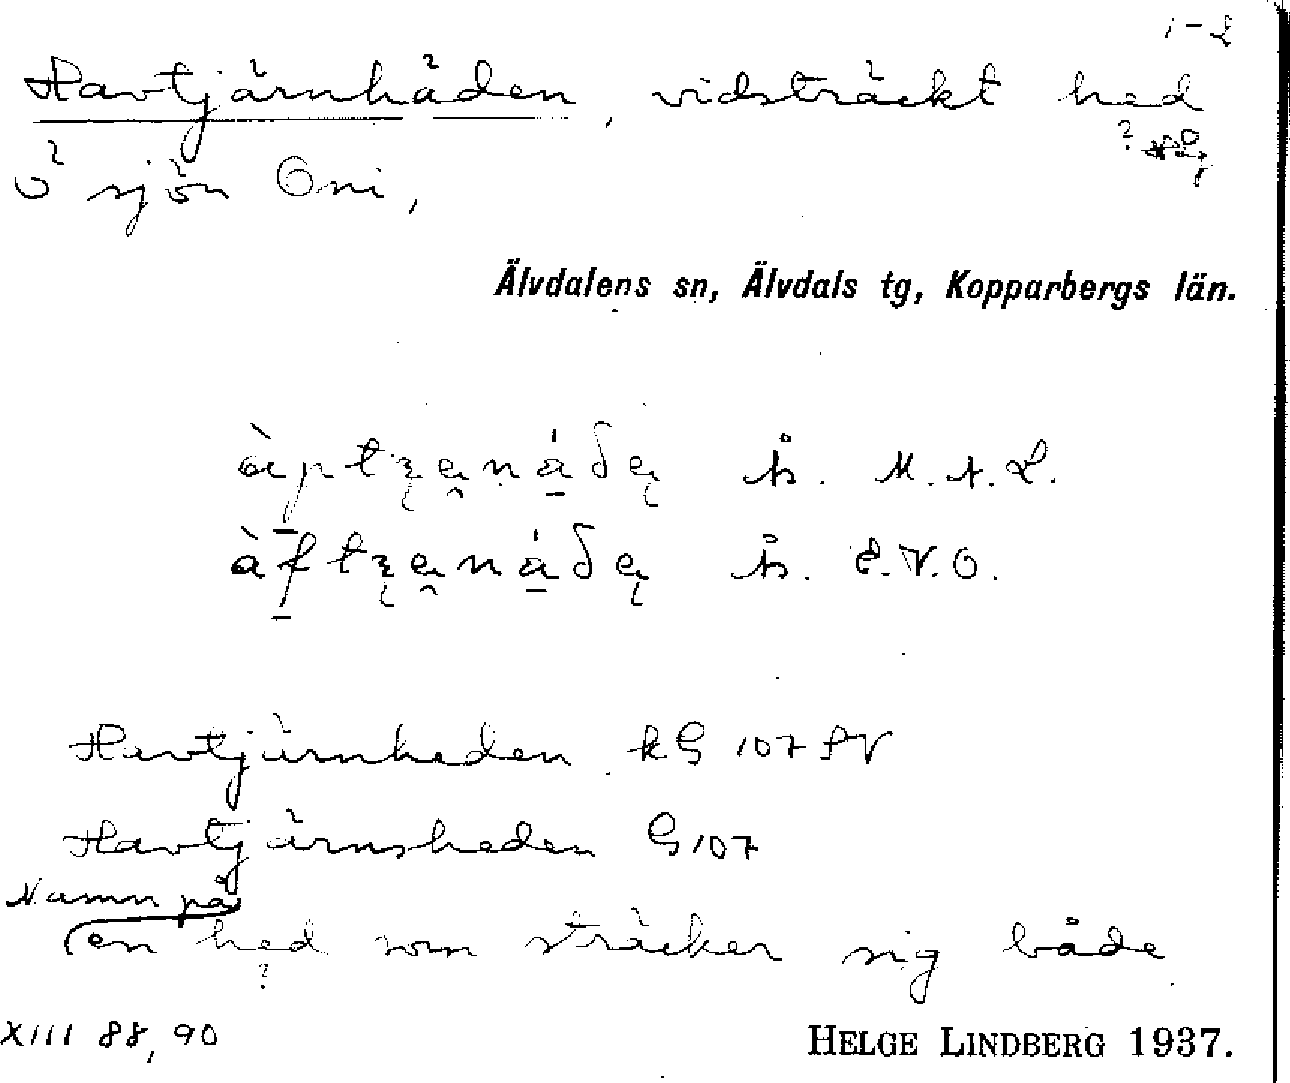 1-2
Havtjärnhäden, vidsträckt hed
ö sjön Oni,
Älvdalens sn, Älvdals tg, Kopparbergs län.
h. M. A. L.
h. E. V. O.
Hevtjärnheden kG 107 SV
Havtjärnsheden G 107
Namn på
en hed som sträcker sig både
XIII 88, 90
HELGE LINDBERG 1937.